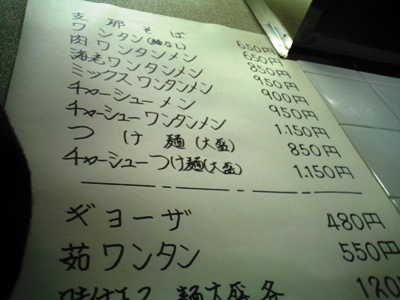 支那そば 650円
ワンタン(麺なし) 650円
肉ワンタンメン 850円
海老ワンタンメン 950円
ミックスワンタンメン 900円
チャーシューメン 950円
チャーシューワンタンメン 1,150円
つけ麺(大盛) 850円
チャーシューつけ麺(大盛) 1,150円
ギョーザ 480円
茹ワンタン 550円
麺大盛 各 120